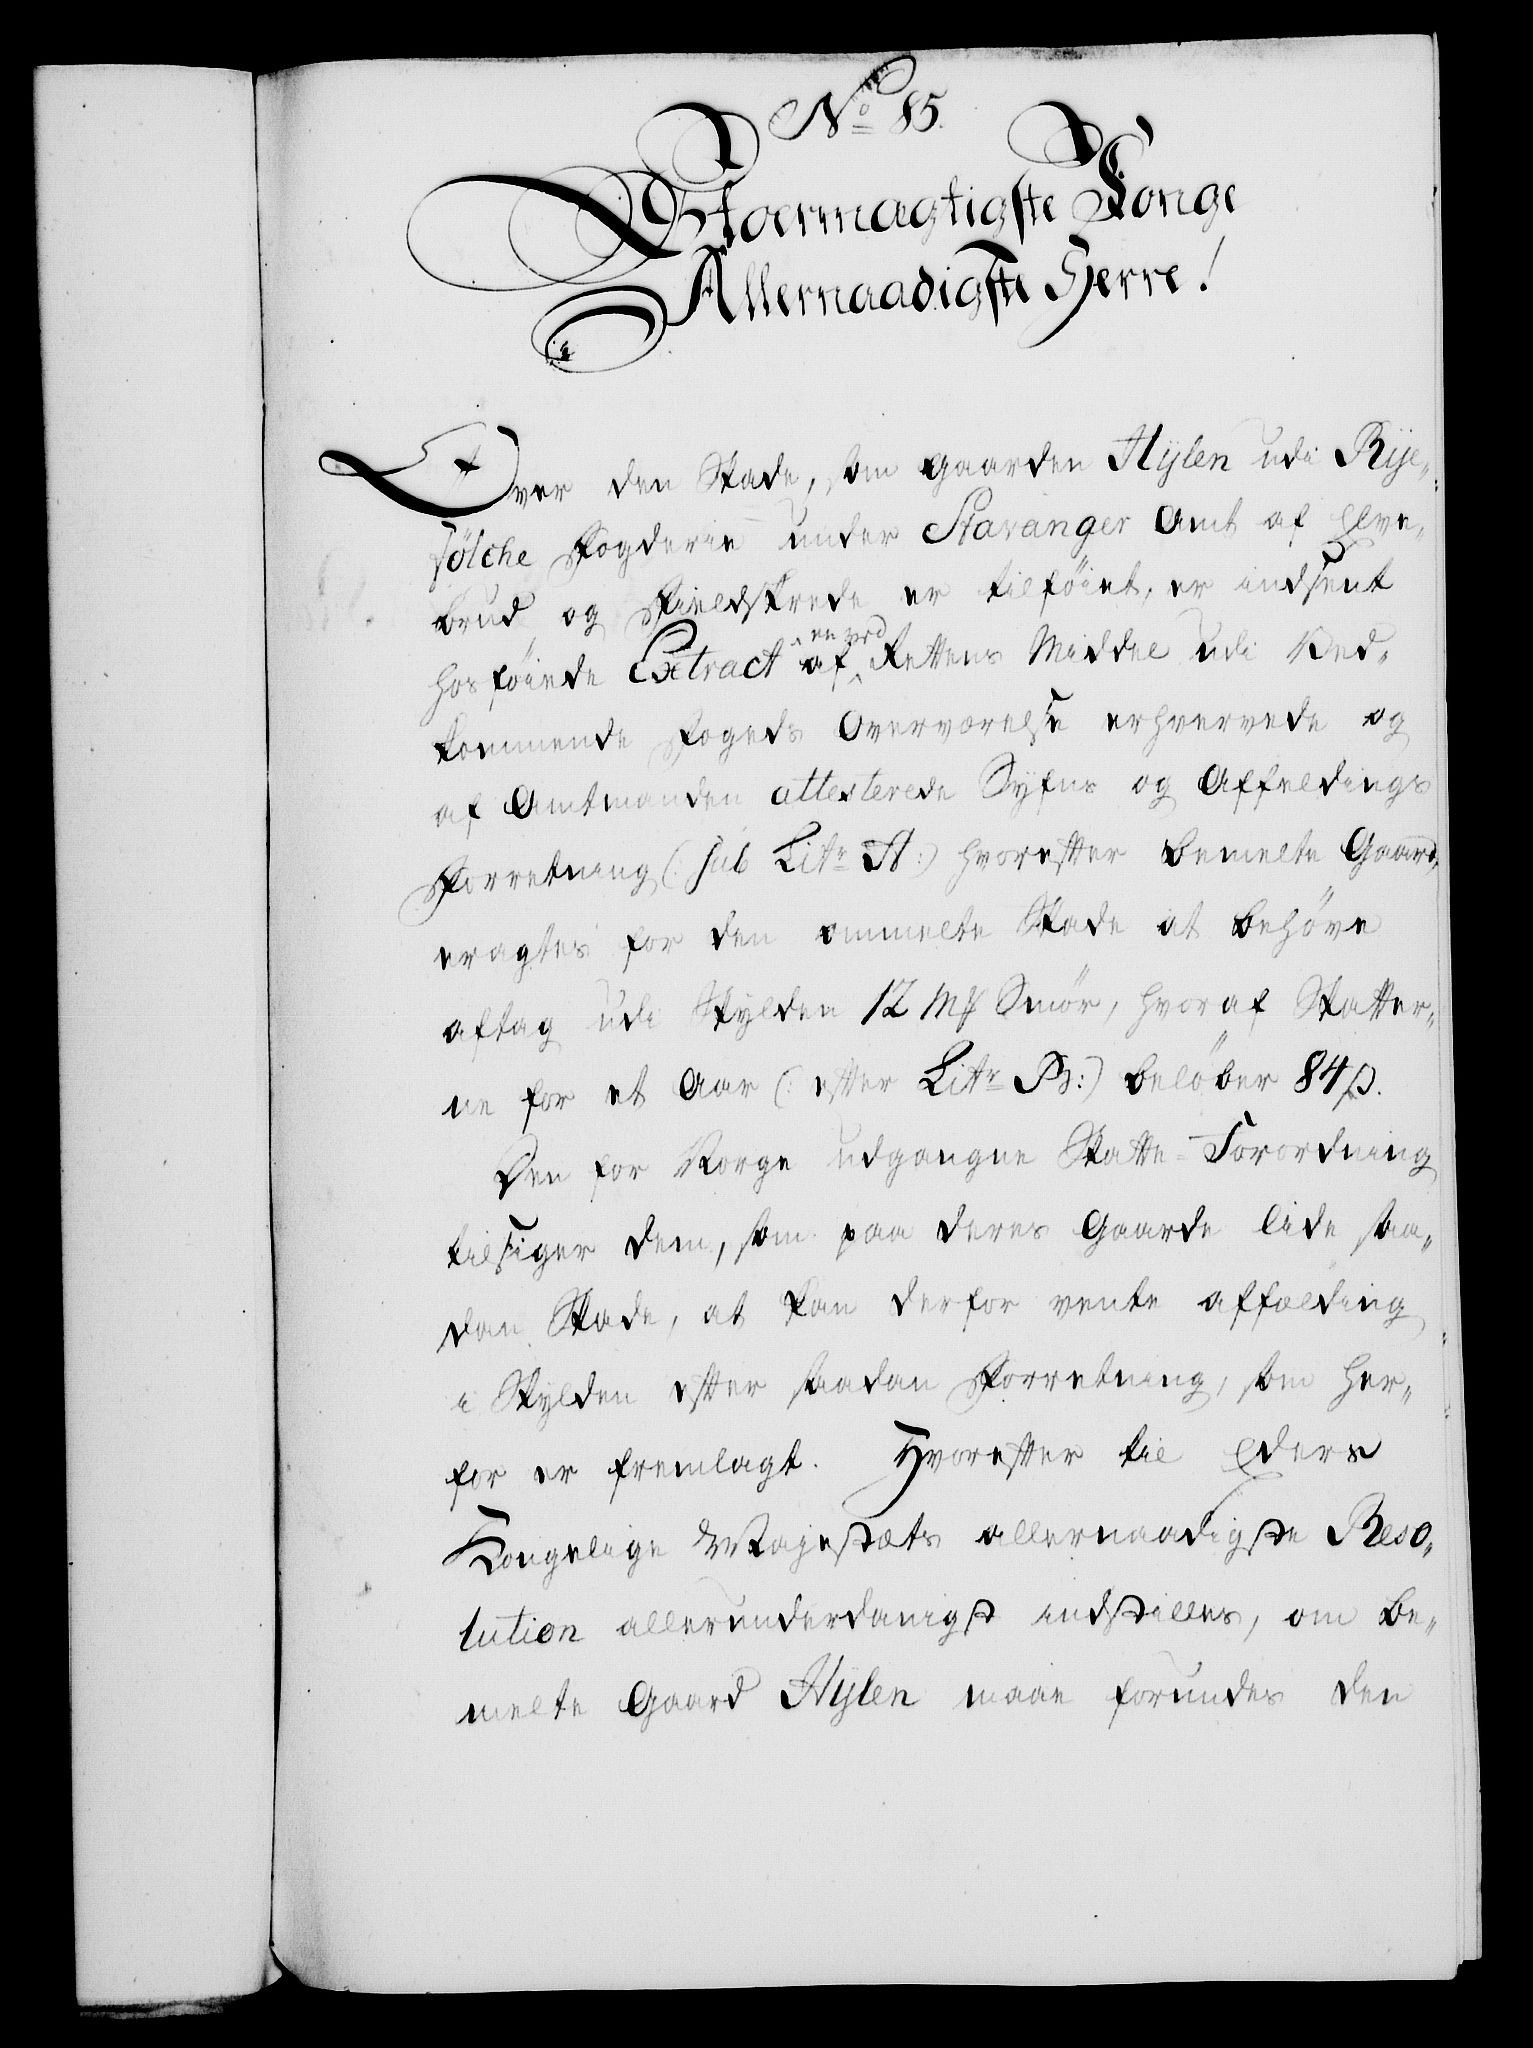 No 85.
Stoermagtigste Konge
Allernaadigste Herre!
Over den Skade, som gaarden Hylen udi Rye-
fölche Fogderie under Stavanger Amt af Elve-
brud og Fieldskrede er tilföiet, er indsent
hosföiede Extract af en ved Rettens Middel udi Ved-
kommende Fogeds Overværelse erhvervede og
af Amtmanden attesterede Syfns og Affeldings
Forretning (: sub Litr A :) hvorefter bemelte Gaard
eragtes for den ommelte Skade at behöve
aftag udi Skylden 12 Mk Smör, hvoraf Skatter-
ne for et Aar (: efter Litr B :) belöber 84 s.
Den for Norge udgangne Skatte-Forordning
tilsiger dem, som paa deres Gaarde lide saa-
dan Skade, at kan derfor vente affælding
i Skylden efter saadan Forretning, som her-
for er fremlagt. Hvorefter til Eders
Kongelige Majestæts allernaadigste Reso-
lution allerunderdanigst indstilles, om be-
melte Gaard Hylen maae forundes den